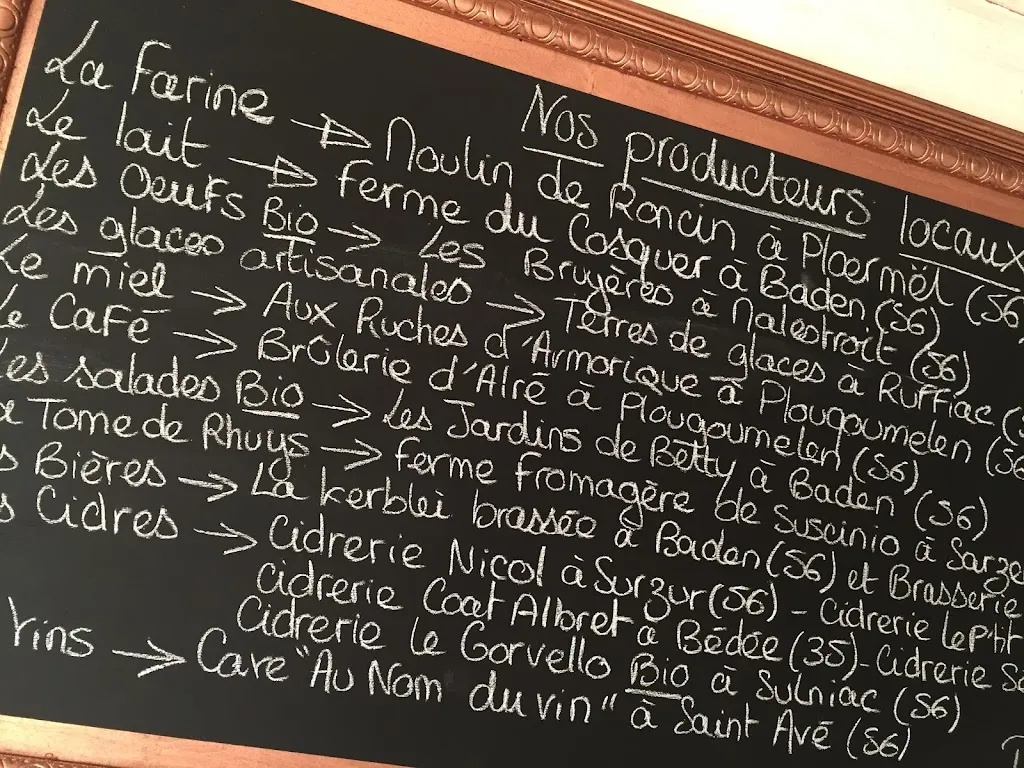 Nos producteurs locaux
La Farine → Moulin de Roncin à Ploërmël (56)
Le lait → Ferme du Cosquer à Baden (56)
Les Oeufs Bio → Les Bruyères à Malestroit (56)
Les glaces artisanales → Terres de glaces à Ruffiac
Le miel → Aux Ruches d'Armorique à Plougoumelen (56
Le Café → Brûlerie d'Alré à Plougoumelen (56)
Les salades Bio → Les Jardins de Betty à Baden (56)
La Tome de Rhuys → Ferme fromagère de suscinio à Sarze
s Bières → La kerblei brassée à Baden (56) et Brasserie
s Cidres → Cidrerie Nicol à Surzur (56) - Cidrerie Le P'tit
Cidrerie Coat Albret à Bédée (35) - Cidrerie
Cidrerie le Gorvello Bio à Sulniac (56)
Vins → Cave "Au Nom du vin" à Saint Avé (56)